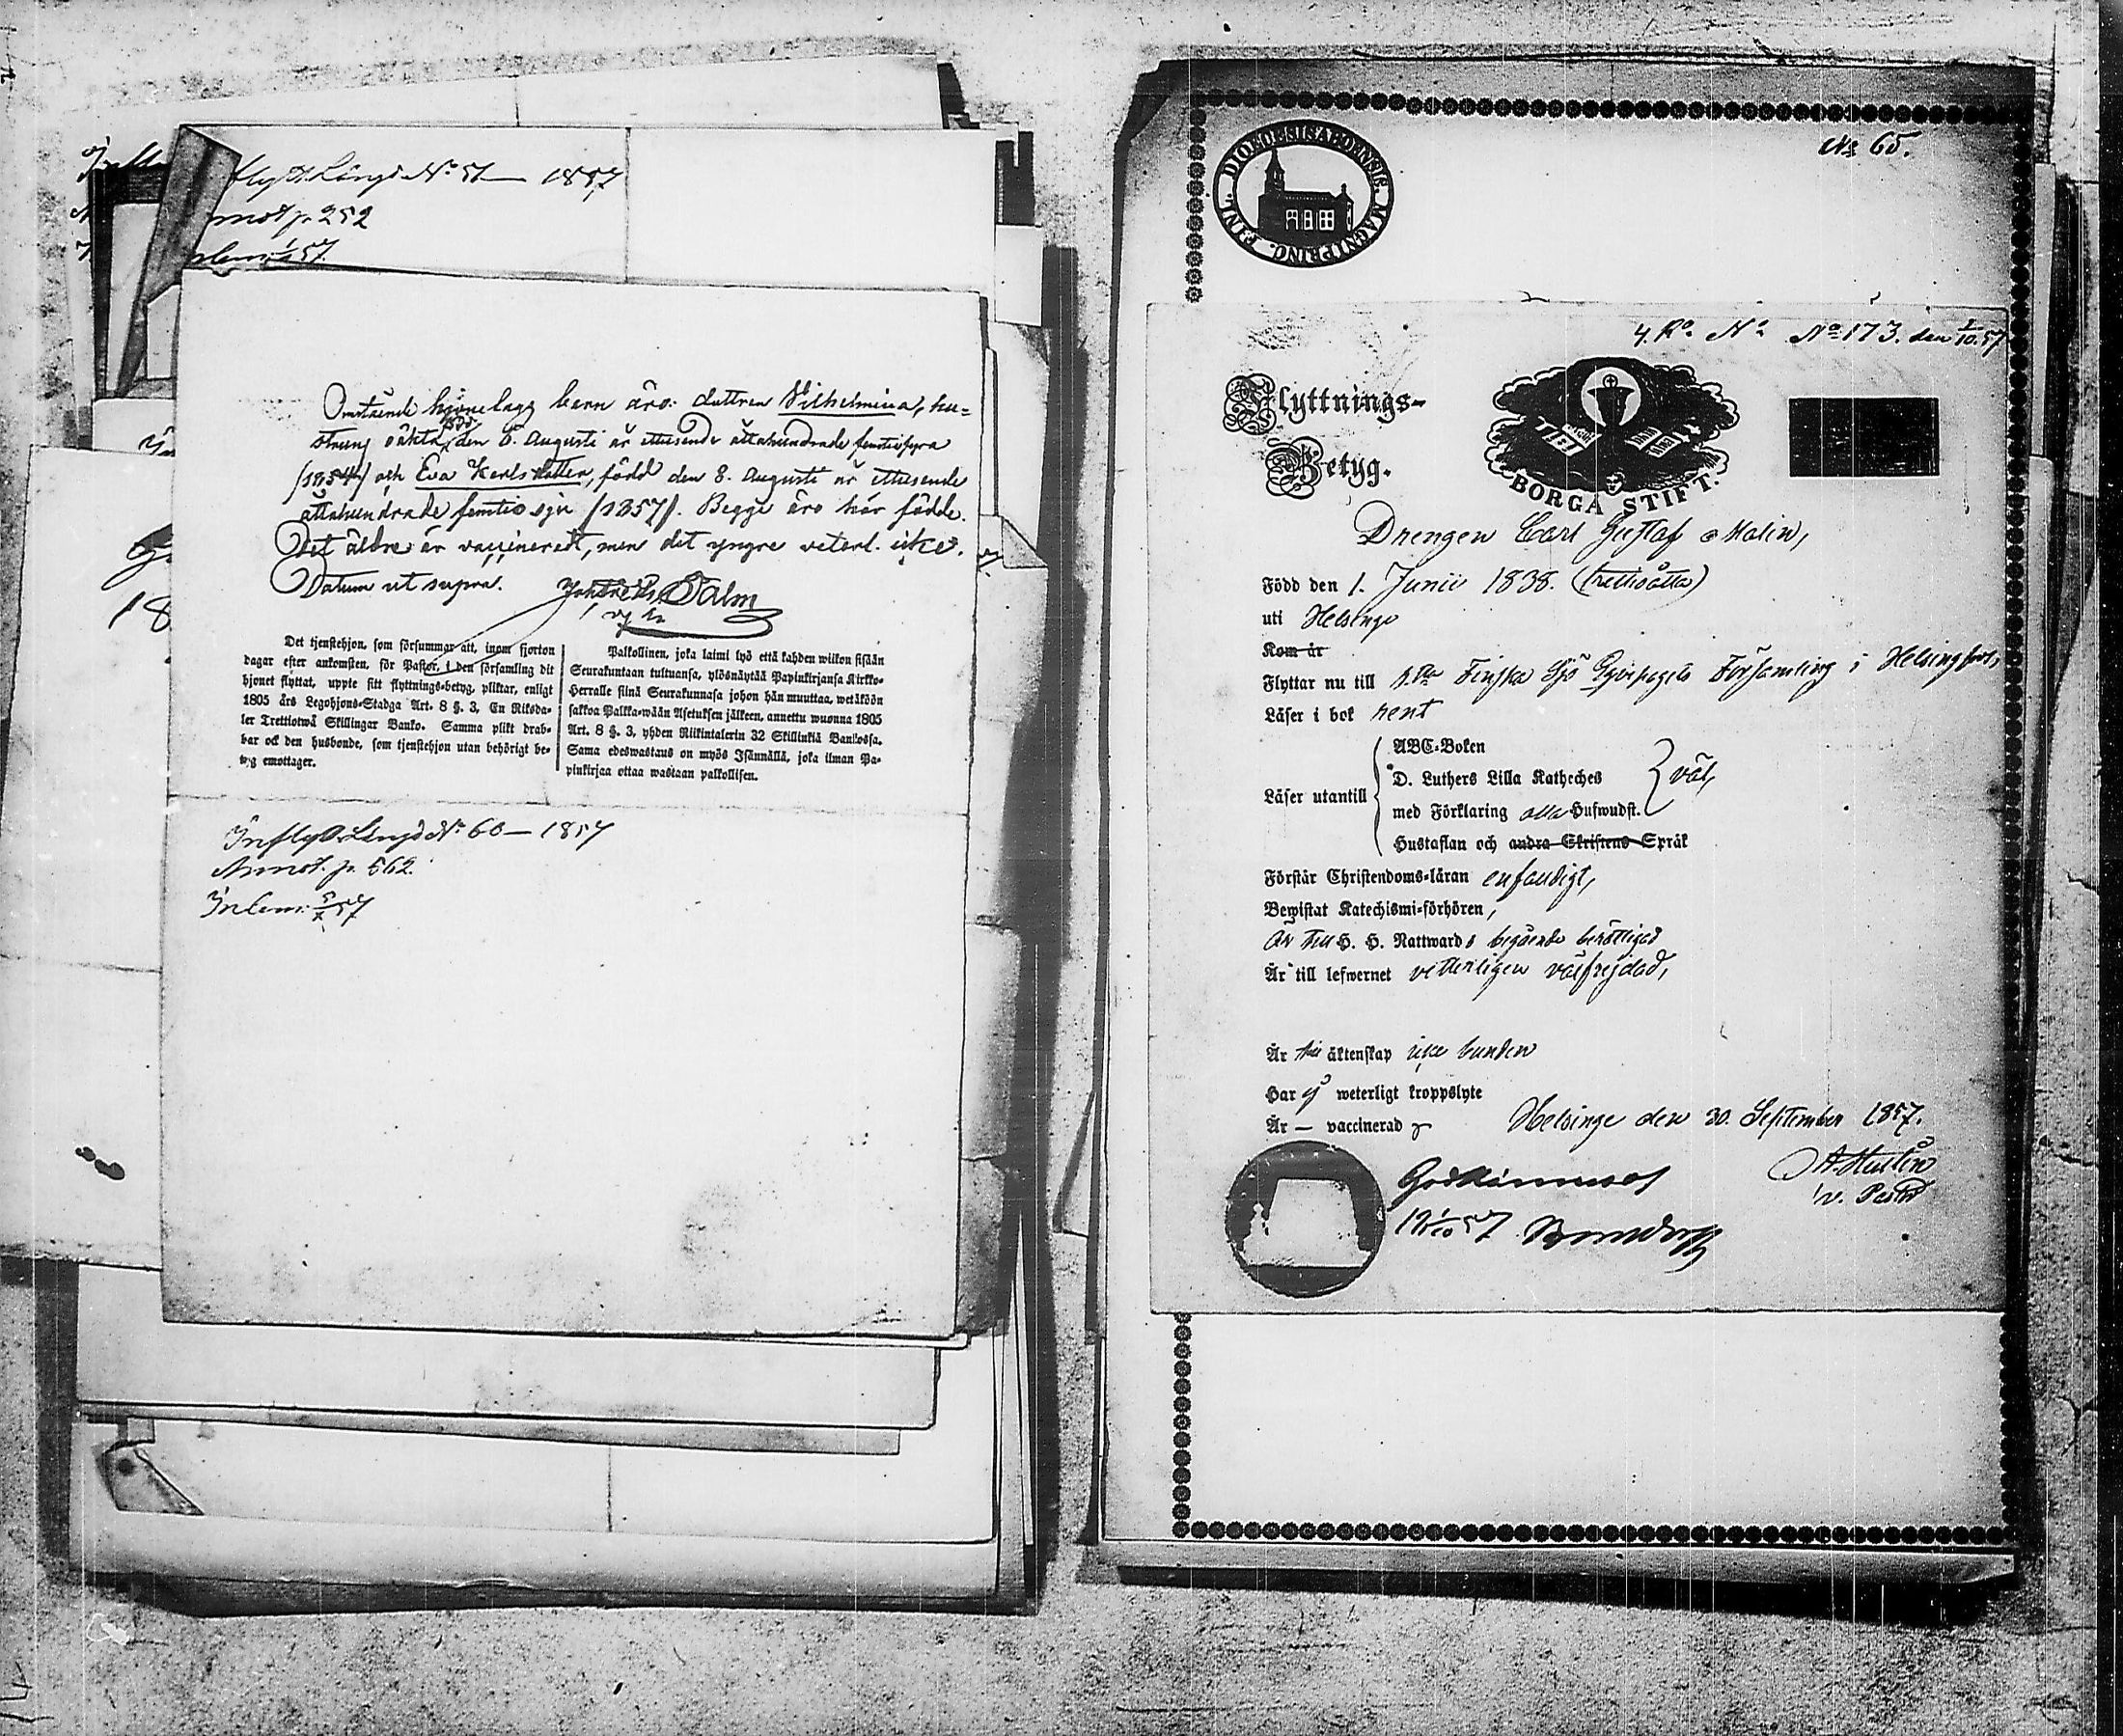 flytt Längd No 51 — 1857
annot p 252
Inlem 1/6 57.
Omstående hjonelags barn äro: dottren Wilhelmina, hu-
struns oäkta, född den 6. Augusti år ettusende åttahundrade femtiofyra
(1854) och Eva Karlsdotter, född den 8. Augusti år ettusende
åttahundrade femtiosju (1857). Begge äro här födde.
Det äldre är vaccineradt, men det yngre veterl. icke.
Datum ut supra.
Dalm
Det tjenstehjon, som försummar att, inom fjorton
dagar efter ankomsten, för Pastor, i den församling dit
hjonet flyttat, uppte sitt flyttnings-betyg, pliktar, enligt
1805 års Legohjons-Stadga Art. 8 §. 3, En Riksda-
ler Trettiotwå Skillingar Banko. Samma plikt drab-
bar ock den husbonde, som tjenstehjon utan behörigt be-
tyg emottager.
Palkollinen, joka laimi lyö että kahden wiikon sisään
Seurakuntaan tultuansa, ylösnäytää Papinkirjansa Kirkko-
Herralle siinä Seurakunnasa johon hän muuttaa, wetäköön
sakkoa Palkka-wään Asetuksen jälkeen, annettu wuonna 1805
Art. 8 §. 3, yhden Riikintalerin 32 Skillinkiä Bankossa.
Sama edeswastaus on myös Isännällä, joka ilman Pa-
pinkirjaa ottaa wastaan palkollisen.
Inflytt. Längd No 60 — 1857
Annot. p. 562.
Inlem: 5/X 57
No 65.
4. Ro. No No 173. den 1/10. 57
Flyttnings-
Betyg.
BORGÅ STIFT.
Drengen Carl Gustaf Malin,
Född den 1. Junii 1838. (trettioåtta)
uti Helsinge
Kom år
Flyttar nu till 1.sta Finska Sjö Equipagets Församling i Helsingfors,
Läser i bok rent
Läser utantill
ABC-Boken
D. Luthers Lilla Katheches
med Förklaring alla Hufwudst.
väl,
Hustaflan och andra Skriftens Språk
Förstår Christendoms-läran enfaldigt,
Bewistat Katechismi-förhören,
Är till H. H. Nattwards begående berättigad
Är till lefwernet vitterligen välfrejdad,
Är till äktenskap icke bunden
Har ej weterligt kroppslyte
Är — vaccinerad
Helsinge den 30. September 1857.
A. Hultin
v. Pastor
Godkännes
19 1/10 57